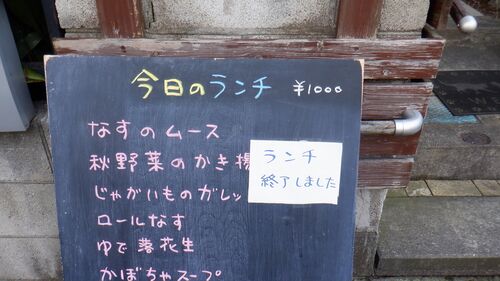 今日のランチ ¥1000
なすのムース
秋野菜のかき揚
じゃがいものガレッ
ロールなす
ゆで落花生
かぼちゃスープ
ランチ
終了しました